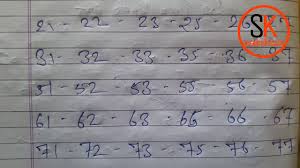 21 - 22 - 23 - 25 - 26
31 - 32 - 33 - 35 - 36 - 37
51 - 52 - 53 - 55 - 56 - 57
61 - 62 - 63 - 65 - 66 - 67
71 - 72 - 73 - 75 - 76 - 77
SK